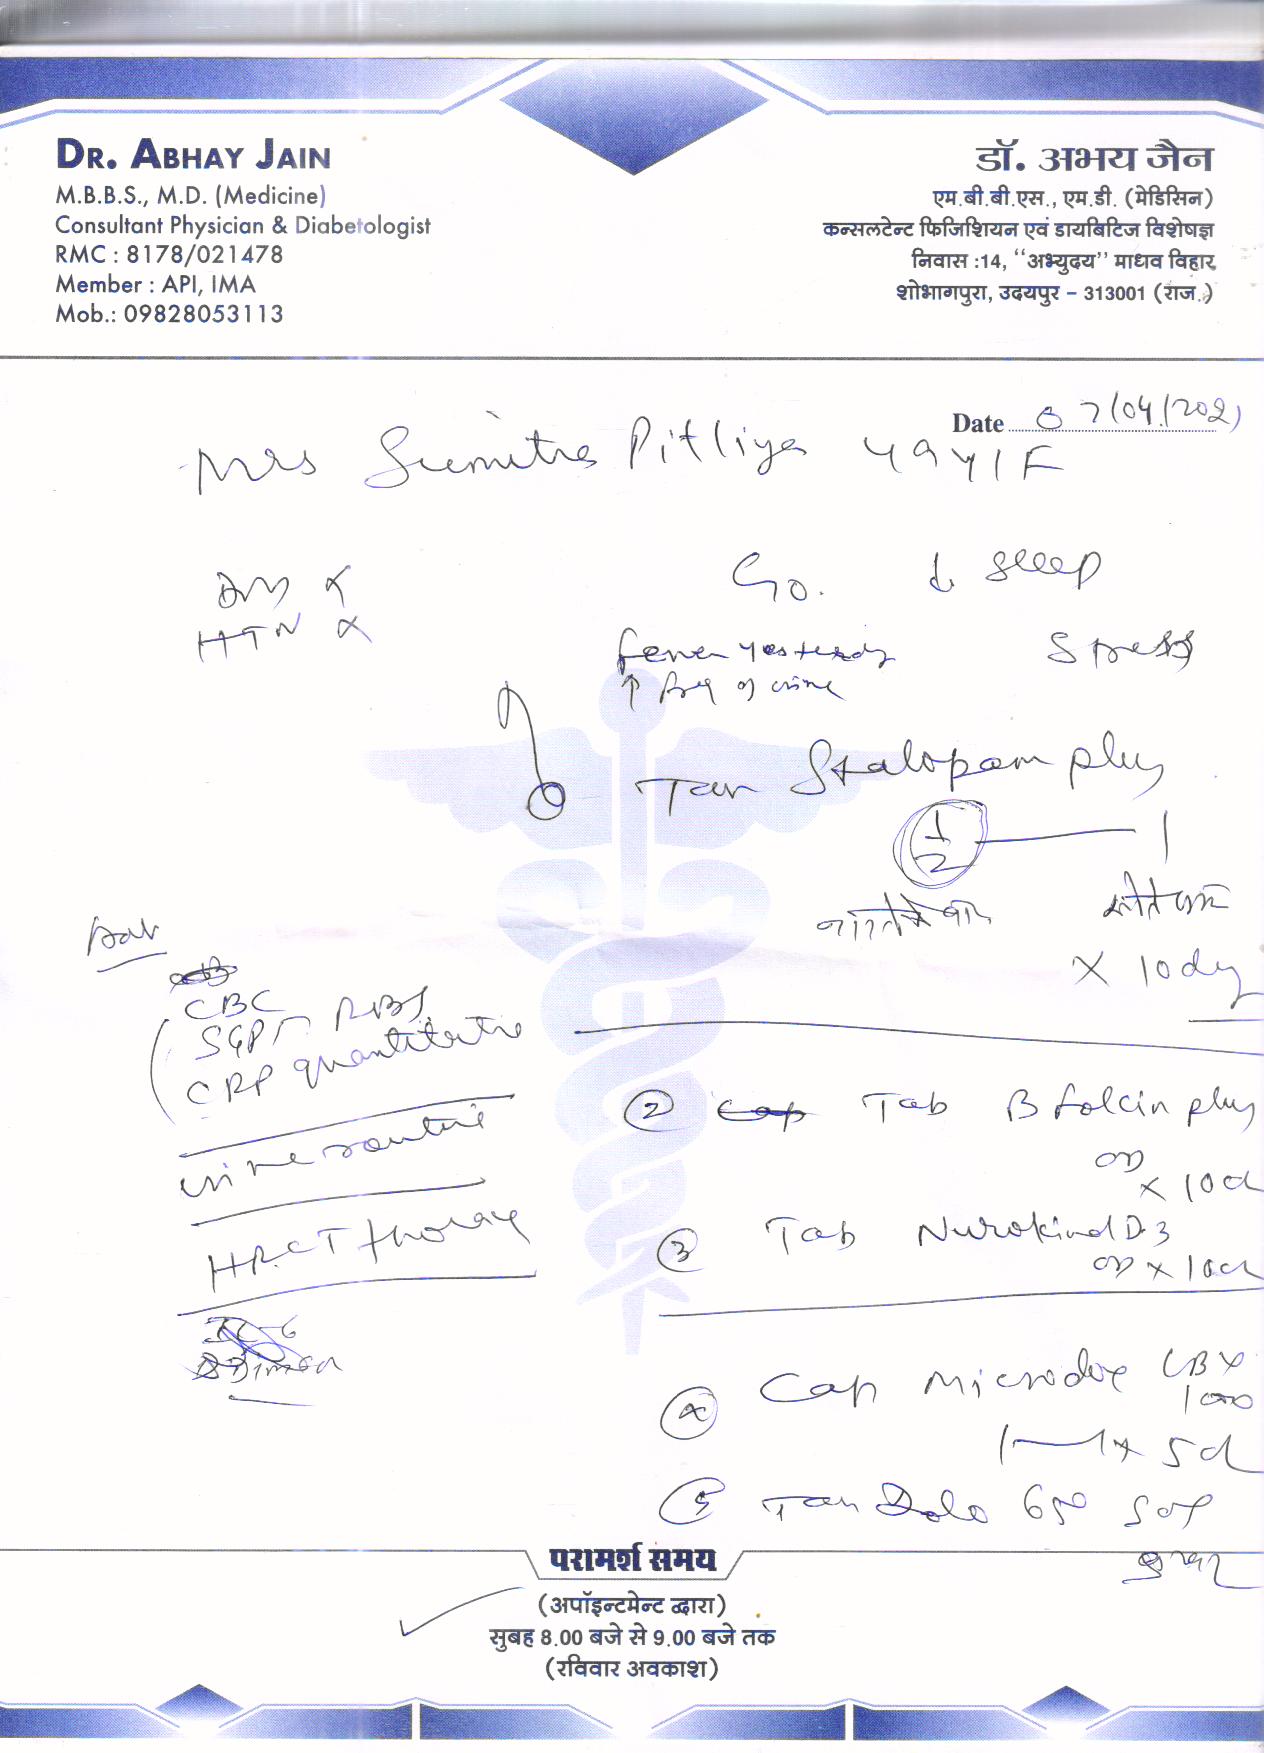 DR. ABHAY JAIN
M.B.B.S., M.D. (Medicine)
Consultant Physician & Diabetologist
RMC : 8178/021478
Member : API, IMA
Mob.: 09828053113
डॉ. अभय जैन
एम.बी.बी.एस., एम.डी. (मेडिसिन)
कन्सलटेन्ट फिजिशियन एवं डायबिटिज विशेषज्ञ
निवास :14, "अभ्युदय" माधव विहार,
शोभागपुरा, उदयपुर – 313001 (राज.)
Date 07/04/2021
Mrs Sumitra Pitliya 49y/F
DM
HTN
C/o. ↓ sleep
fever yesterday Stress
↑ freq of urine
① Tab Stalopam plus
1/2 — 1
नाश्ते के बाद
x 10dy
Adv
CBC
SGPT RBS
CRP quantitative
urine routine
HRCT thorax
IL-6
D Dimer
② Tab Bfolcin plus
OD
x 10d
③ Tab Nurokind D3
OD x 10d
④ Cap Microdox LBX
100
1—1 x 5d
⑤ Tab Dolo 650 SOS
परामर्श समय
(अपॉइन्टमेन्ट द्वारा)
सुबह 8.00 बजे से 9.00 बजे तक
(रविवार अवकाश)